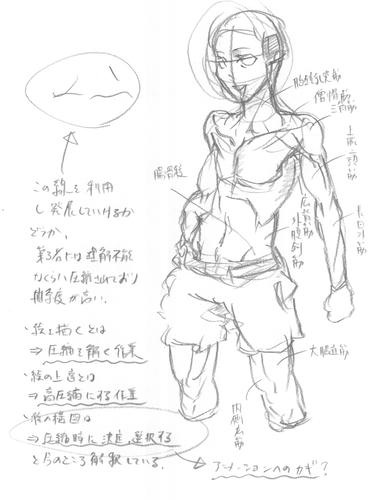 胸鎖乳突筋
僧帽筋
三角筋
上腕二頭筋
腸骨稜
広背筋
外腹斜筋
大腿直筋
内側広筋
この線を利用
し発展していけるか
どうか、
第3者には理解不能
なくらい圧縮されており
・絵を描くとは
⇒圧縮を解く作業
・絵の上達とは
⇒高圧縮にする作業
・絵の構図は
⇒圧縮時に決定、選択する
とのところ解釈している。
アニメーションへのカギ?